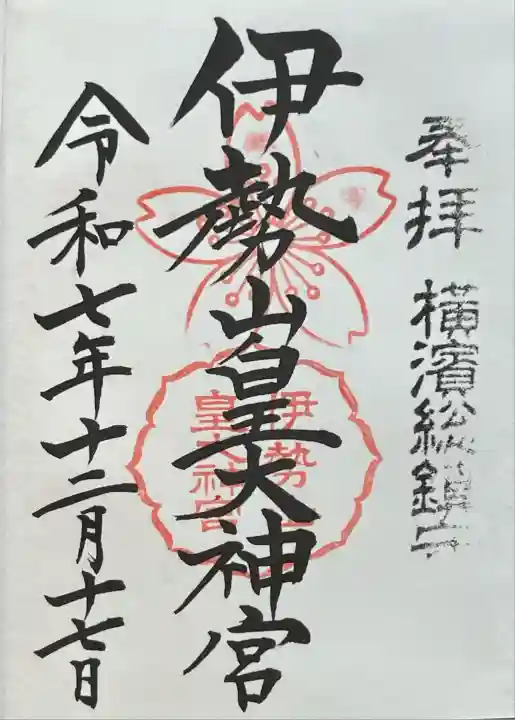 奉拝
横濱総鎮守
伊勢山皇大神宮
伊勢山
皇大神宮
令和七年十二月十七日